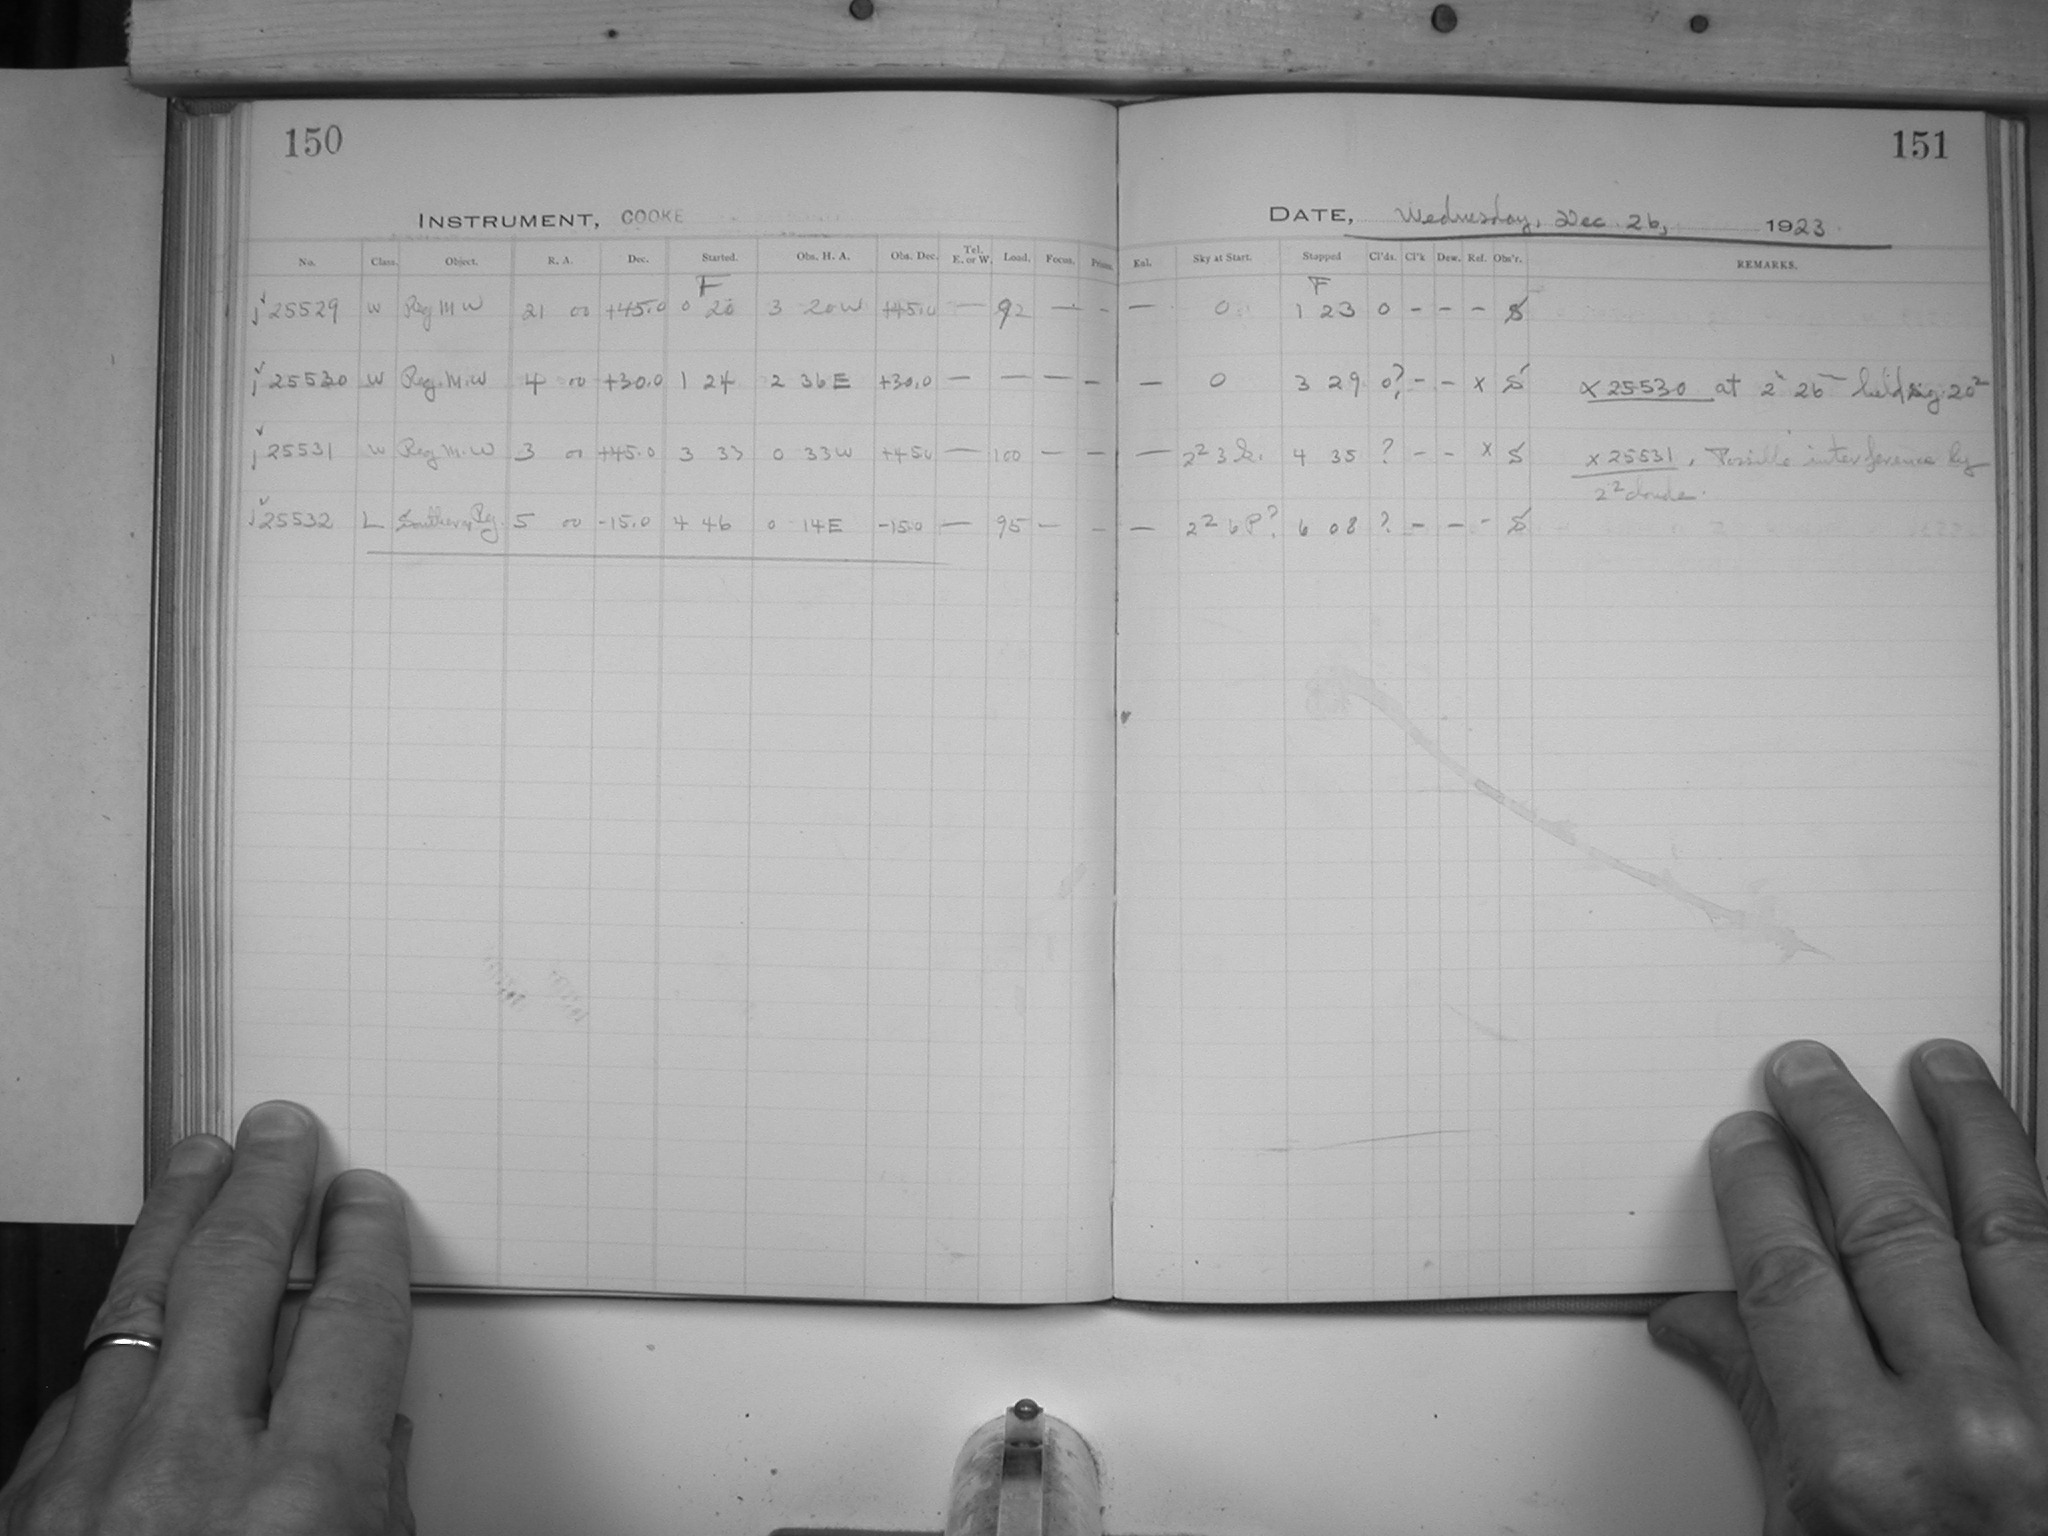 150
151
INSTRUMENT, COOKE
DATE, Wednesday, Dec. 26, 1923.
No. Class. Object. R. A. Dec. Started. Obs. H. A. Obs. Dec. Tel. E. or W. Load. Focus. Prisms. Exl. Sky at Start. Stopped Cl'ds. Cl'k Dew. Ref. Obs'r. REMARKS.
F F
25529 W Reg M W 21 00 +45.0 0 20 3 20W +45.0 — 92 — - — 0 1 23 0 - - - S
25530 W Reg. M. W 4 00 +30.0 1 24 2 36E +30.0 — — — - — 0 3 29 0? - - x S x 25530 at 2 26 held 20
25531 W Reg M. W 3 00 +45.0 3 33 0 33W +45.0 — 100 — - — 2² 3 4 35 ? - - x S x 25531, Possible interference by
2² clouds.
25532 L Southern Reg. 5 00 -15.0 4 46 0 14E -15.0 — 95 - - — 2² 6P? 6 08 ? - - - S